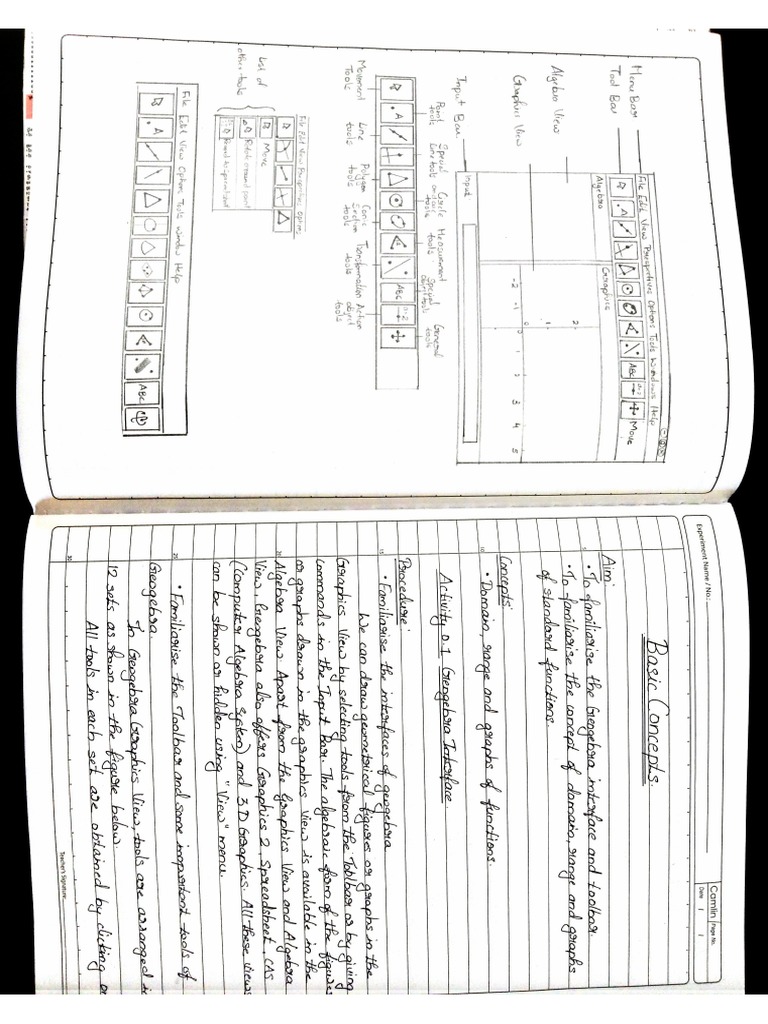 Menu Bar
Tool Bar
Algebra View
Graphics View
Input Bar
File Edit View Perspectives Options Tools Windows Help
A
ABC
a=2
Move
Algebra
Graphics
2
1
0
-2 -1 0 1 2 3 4 5
Input
Point tools
Special line tools
Circle tools
Measurement tools
Special object tools
General tools
A
ABC
a=2
Movement Tools
Line tools
Polygon tools
Conic Section tools
Transformation tools
Action object tools
File Edit View Perspectives Options
Move
Rotate around point
List of other tools
File Edit View Options Tools Window Help
A
ABC
Experiment Name / No.:
Camlin
Page No.
Date / /
Basic Concepts.
Aim:
• To familiarise the Geogebra interface and toolbar.
5
• To familiarise the concept of domain, range and graphs
of standard functions.
Concepts:
10
• Domain, range and graphs of functions.
Activity 0.1 Geogebra Interface
Procedure:
15
• Familiarise the interfaces of geogebra
We can draw geometrical figures or graphs in the
Graphics View by selecting tools from the Toolbar or by giving
commands in the Input Bar. The algebraic form of the figures
or graphs drawn in the graphics View is available in the
20
Algebra View. Apart from the Graphics View and Algebra
View, Geogebra also offers Graphics 2, Spreadsheet, CAS
(Computer Algebra System) and 3D Graphics. All these views
can be shown or hidden using "View" menu.
25
• Familiarise the Toolbar and some important tools of
Geogebra
In Geogebra Graphics View, tools are arranged in
12 sets as shown in the figure below.
30
All tools in each set are obtained by clicking on
Teacher's Signature: